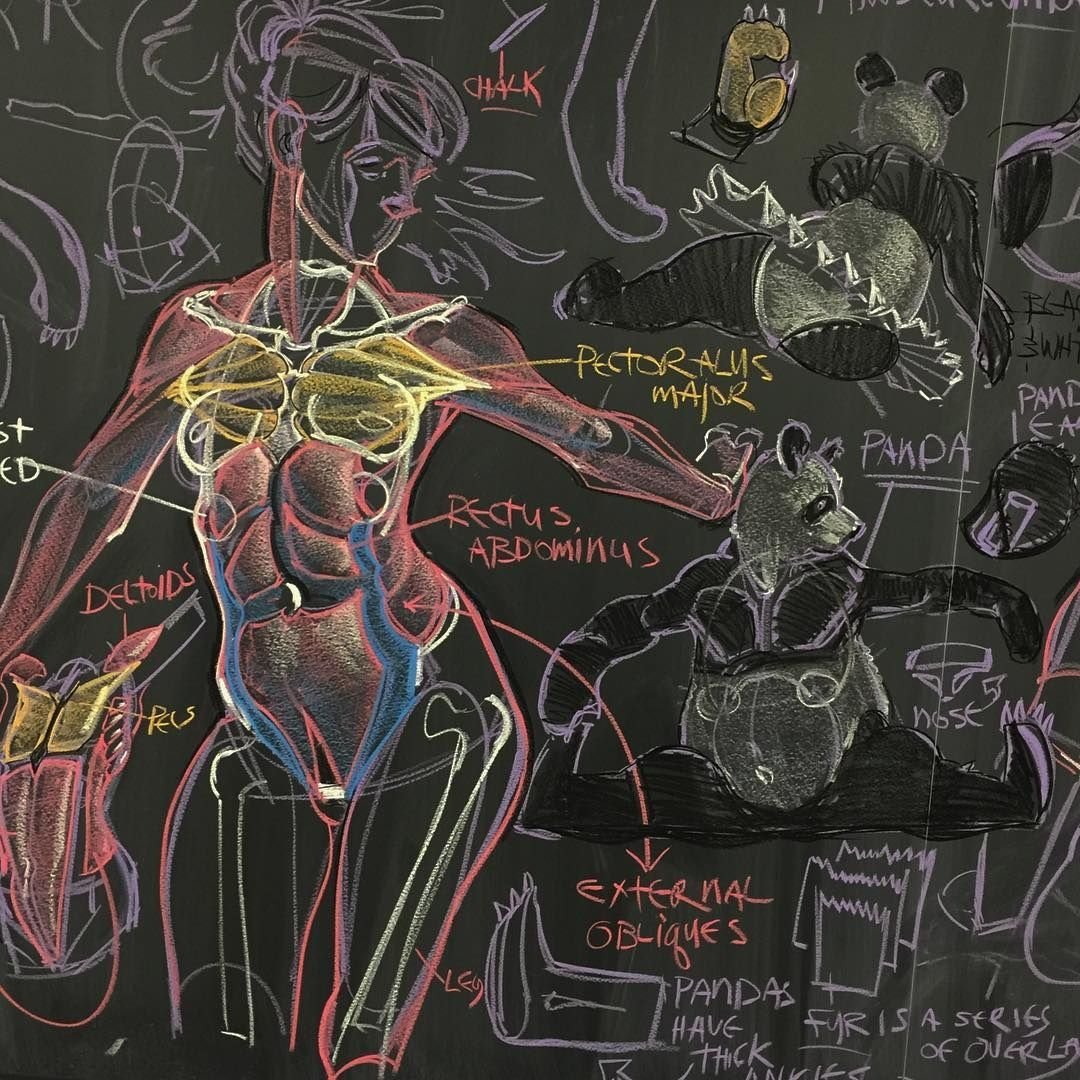 CHALK
PECTORALUS
MAJOR
PANDA
RECTUS
ABDOMINUS
DELTOIDS
PECS
NOSE
EXTERNAL
OBLIQUES
LEG
PANDAS
HAVE
THICK
ANKLES
FUR IS A SERIES
OF OVERLA
ST
ED
PAND
EA
BLA
&WH